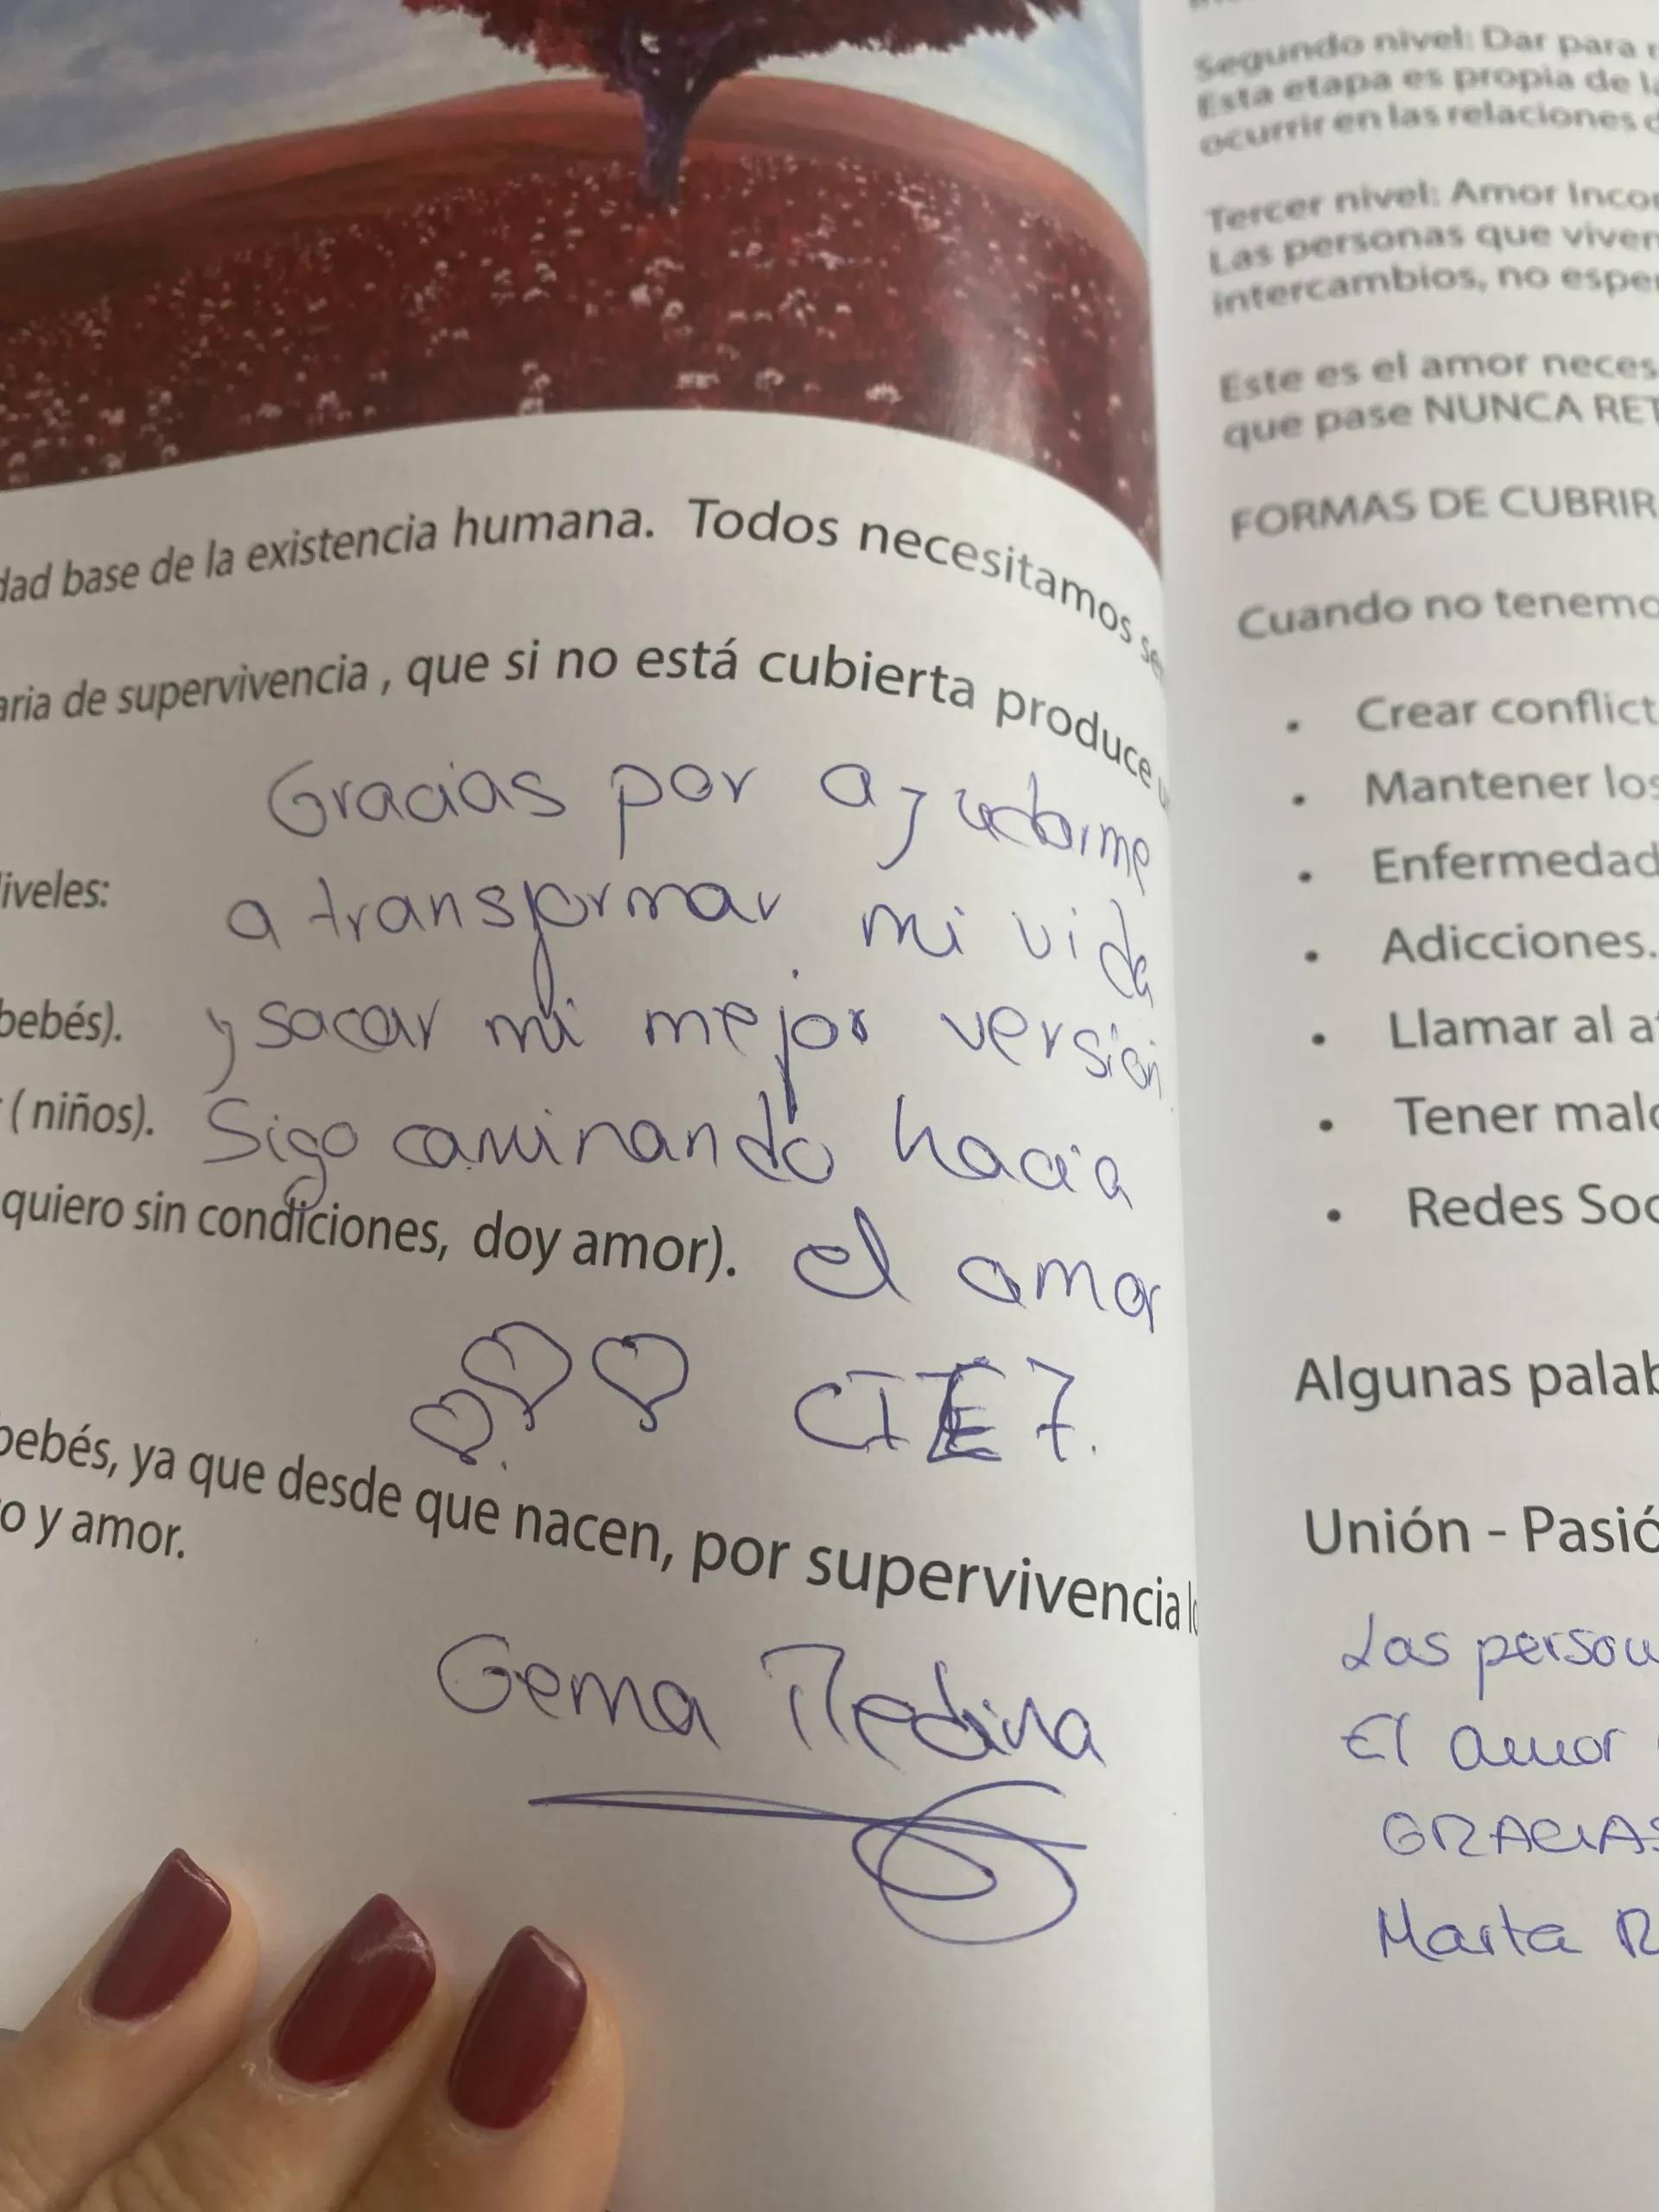 dad base de la existencia humana. Todos necesitamos se
aria de supervivencia , que si no está cubierta produce
Gracias por ayudarme
iveles:
a transformar mi vida
bebés).
y sacar mi mejor version.
( niños).
Sigo caminando hacia
quiero sin condiciones, doy amor).
el amor
CTE7.
bebés, ya que desde que nacen, por supervivencia
o y amor.
Gema Medina
Segundo nivel: Dar para
Esta etapa es propia de la
ocurrir en las relaciones
Tercer nivel: Amor Incon
Las personas que viven
intercambios, no esper
Este es el amor neces
que pase NUNCA RET
FORMAS DE CUBRIR
Cuando no tenemo
• Crear conflict
• Mantener los
• Enfermedad
• Adicciones.
• Llamar al a
• Tener malo
• Redes Soc
Algunas palab
Unión - Pasió
Las person
El amor
GRACIAS
Marta R